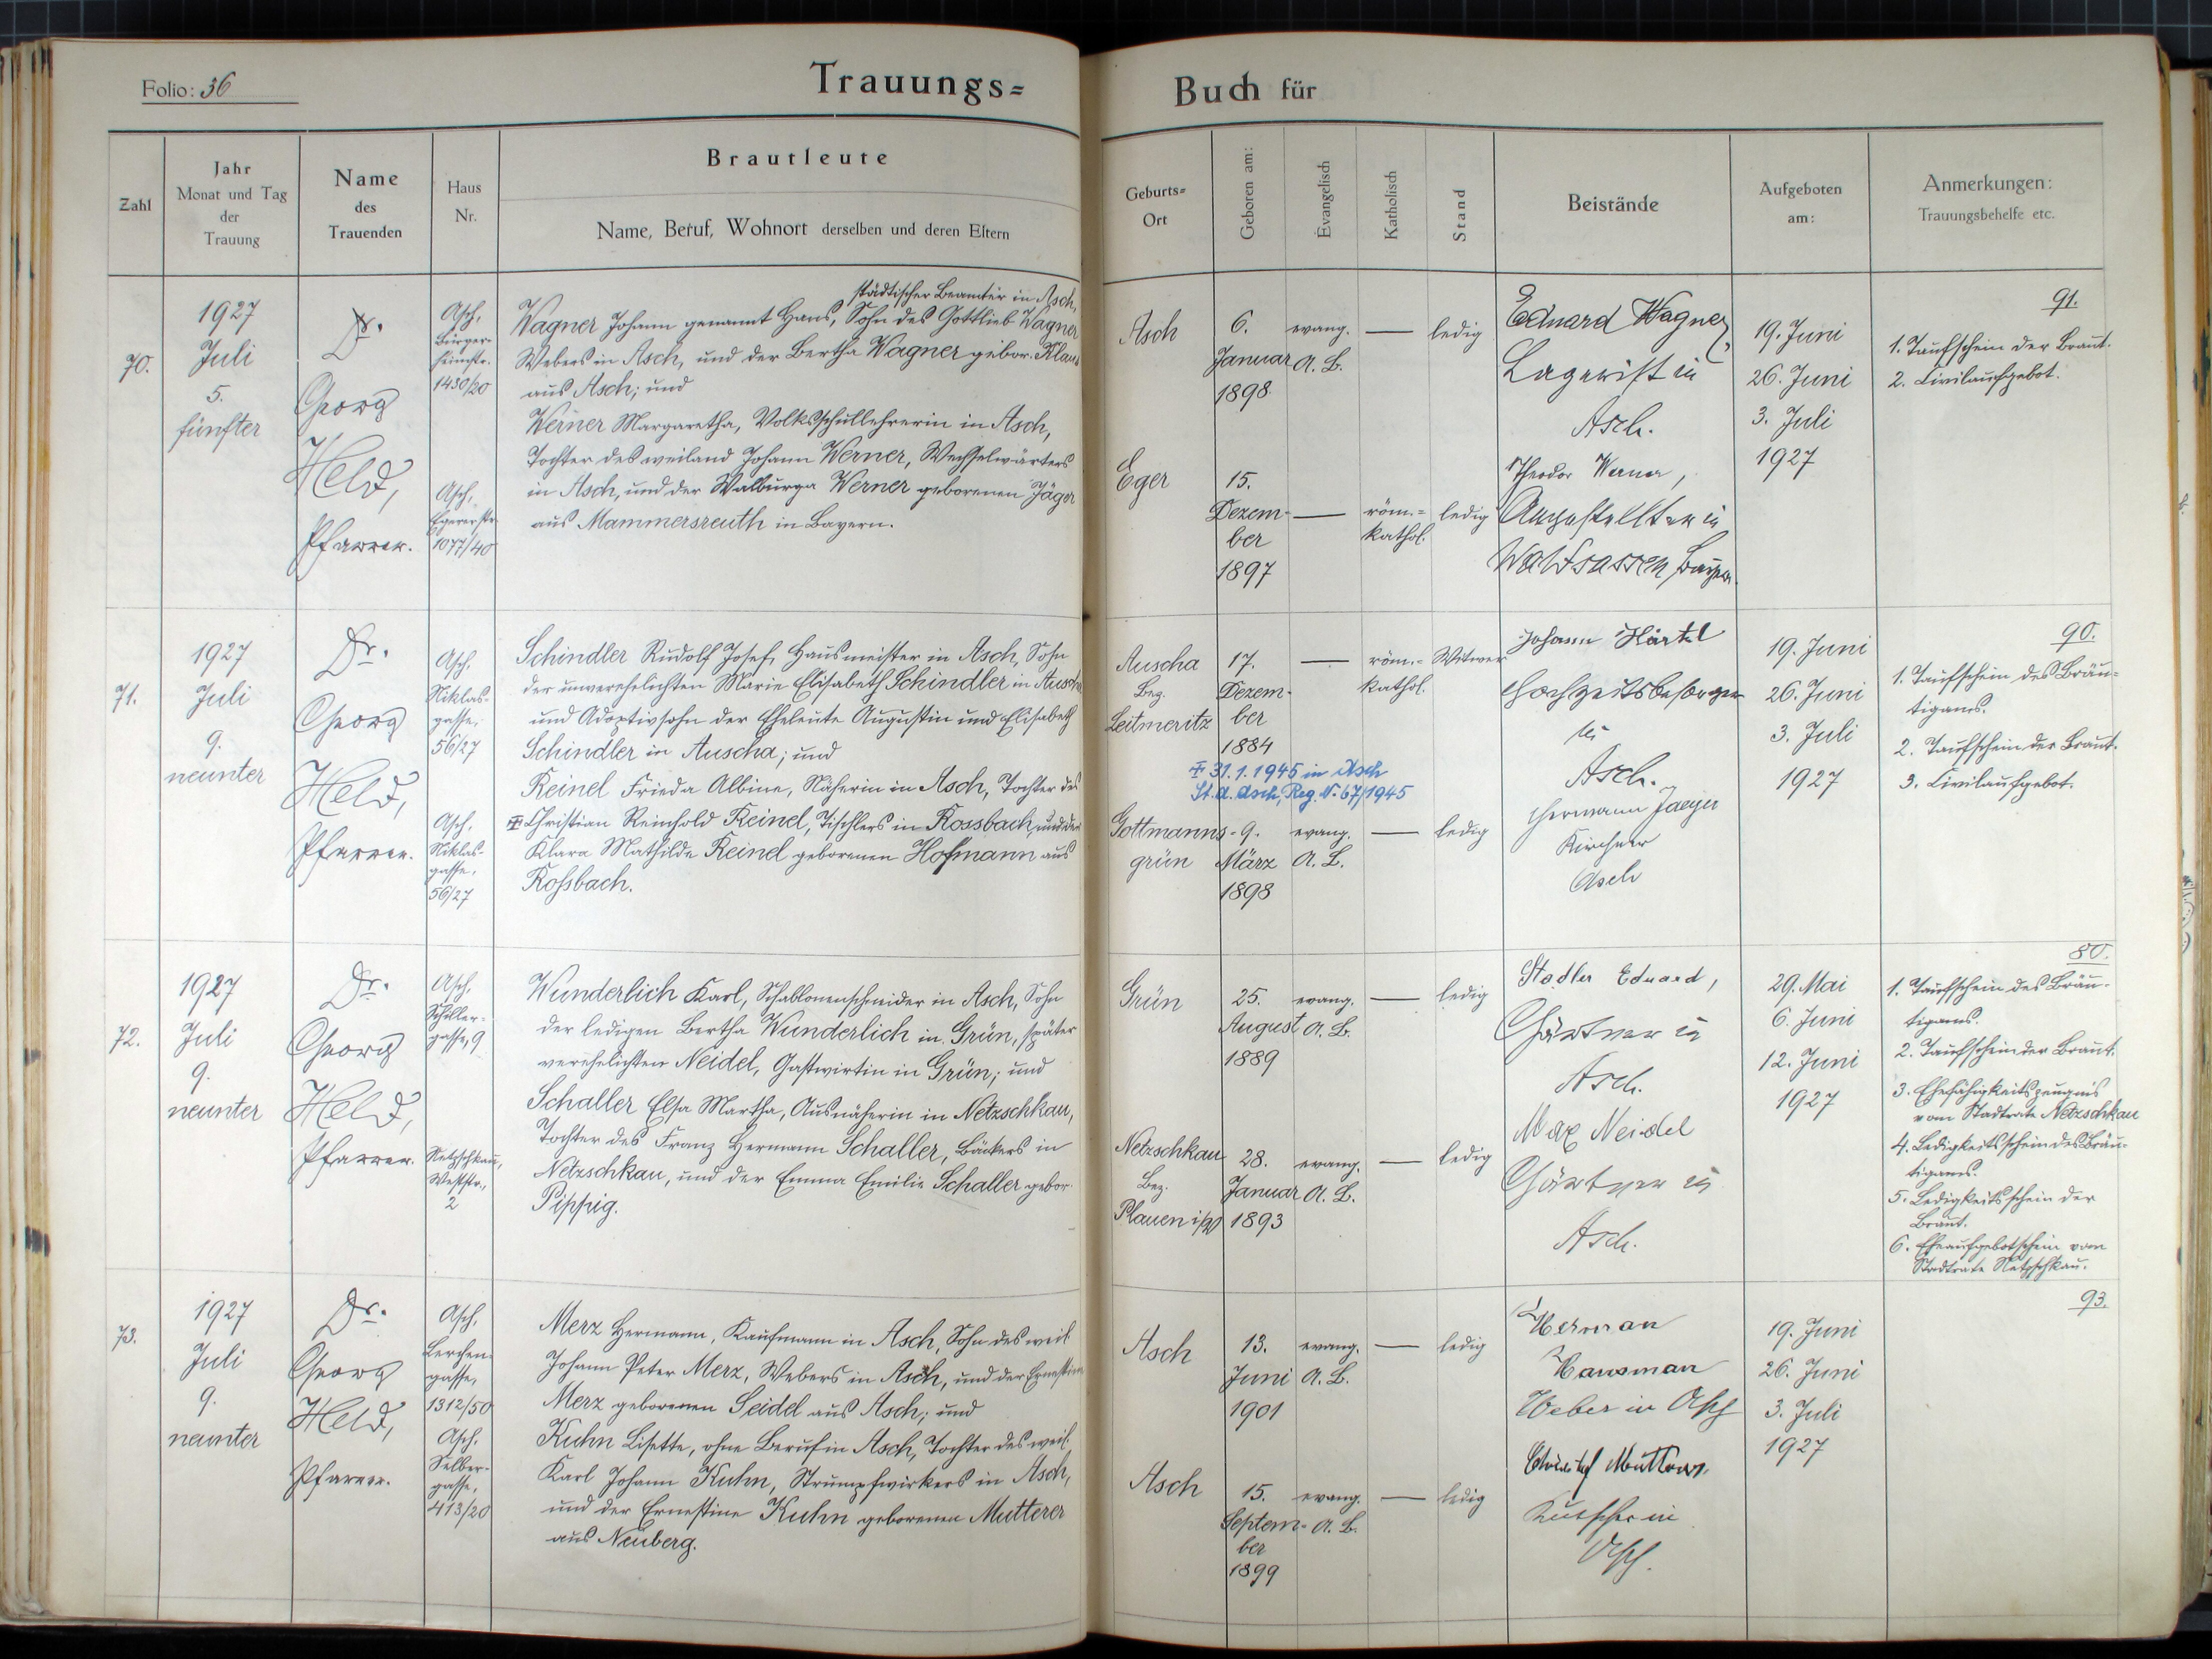 Folio: 36
Trauungs=
Buch für
Zahl
Jahr
Monat und Tag
der
Trauung
Name
des
Trauenden
Haus
Nr.
Brautleute
Name, Beruf, Wohnort derselben und deren Eltern
Geburts=
Ort
Geboren am:
Evangelisch
Katholisch
Stand
Beistände
Aufgeboten
am:
Anmerkungen:
Trauungsbehelfe etc.
70.
1927
Juli
5.
fünfter
Dr.
Georg
Held,
Pfarrer.
Asch,
Bürger-
heimstr.
1430/20
Asch,
Egererstr.
1077/40
städtischer Beamter in Asch,
Wagner Johann genannt Hans, Sohn des Gottlieb Wagner
Webers in Asch, und der Bertha Wagner gebor. Klaus
aus Asch; und
Werner Margaretha, Volksschullehrerin in Asch,
Tochter des weiland Johann Werner, Wechselwärters
in Asch, und der Walburga Werner geborenen Jäger
aus Mammersreuth in Bayern.
Asch
6.
Januar
1898
evang.
A. B.
—
ledig
Eger
15.
Dezem-
ber
1897
—
röm.=
kathol.
ledig
Eduard Wagner,
Lagerist in
Asch.
Theodor Werner,
Angestellter in
Waldsassen, Bayern.
19. Juni
26. Juni
3. Juli
1927
91.
1. Taufschein der Braut.
2. Civilaufgebot.
71.
1927
Juli
9.
neunter
Dr.
Georg
Held,
Pfarrer.
Asch,
Niklas-
gasse,
56/27
Asch,
Niklas-
gasse,
56/27
Schindler Rudolf Josef, Hausmeister in Asch, Sohn
der unverehelichten Marie Elisabeth Schindler in Auscha
und Adoptivsohn der Eheleute Augustin und Elisabeth
Schindler in Auscha; und
Reinel Frieda Albine, Näherin in Asch, Tochter des
Christian Reinhold Reinel, Tischlers in Rossbach, und der
Klara Mathilde Reinel geborenen Hofmann aus
Roßbach.
Auscha
Bez.
Leitmeritz
17.
Dezem-
ber
1884
—
röm.=
kathol.
Witwer
31.1.1945 in Asch
St.A. Asch, Reg. N. 67/1945
Gottmanns-
grün
9.
März
1898
evang.
A. B.
—
ledig
Johann Härtel
Hochzeitsbesorger
in
Asch.
Hermann Jaeger
Kirchner
Asch
19. Juni
26. Juni
3. Juli
1927
90.
1. Taufschein des Bräu-
tigams.
2. Taufschein der Braut.
3. Civilaufgebot.
72.
1927
Juli
9.
neunter
Dr.
Georg
Held,
Pfarrer.
Asch,
Schiller-
gasse, 9
Netzschkau,
Weststr.,
2
Wunderlich Karl, Schablonenschneider in Asch, Sohn
der ledigen Bertha Wunderlich in Grün, später
verehelichten Neidel, Gastwirtin in Grün; und
Schaller Elsa Martha, Ausnäherin in Netzschkau,
Tochter des Franz Hermann Schaller, Bäckers in
Netzschkau, und der Emma Emilie Schaller gebor.
Pippig.
Grün
25.
August
1889
evang.
A. B.
—
ledig
Netzschkau
Bez.
Plauen i/V
28.
Januar
1893
evang.
A. B.
—
ledig
Stadler Eduard,
Gärtner in
Asch.
Max Neidel
Gärtner in
Asch.
29. Mai
6. Juni
12. Juni
1927
80.
1. Taufschein des Bräu-
tigams.
2. Taufschein der Braut.
3. Ehefähigkeitszeugnis
vom Stadtrate Netzschkau
4. Ledigkeitsschein des Bräu-
tigams.
5. Ledigkeitsschein der
Braut.
6. Eheaufgebotschein vom
Stadtrate Netzschkau.
73.
1927
Juli
9.
neunter
Dr.
Georg
Held,
Pfarrer.
Asch,
Lerchen-
gasse,
1312/50
Asch,
Selber-
gasse,
413/20
Merz Hermann, Kaufmann in Asch, Sohn des weil.
Johann Peter Merz, Webers in Asch, und der Ernestine
Merz geborenen Seidel aus Asch; und
Kuhn Lisette, ohne Beruf in Asch, Tochter des weil.
Karl Johann Kuhn, Strumpfwirkers in Asch,
und der Ernestine Kuhn geborenen Mutterer
aus Neuberg.
Asch
13.
Juni
1901
evang.
A. B.
—
ledig
Asch
15.
Septem-
ber
1899
evang.
A. B.
—
ledig
Herman
Hausman
Weber in Asch
Christof Mutterer
Kutscher in
Asch.
19. Juni
26. Juni
3. Juli
1927
93.